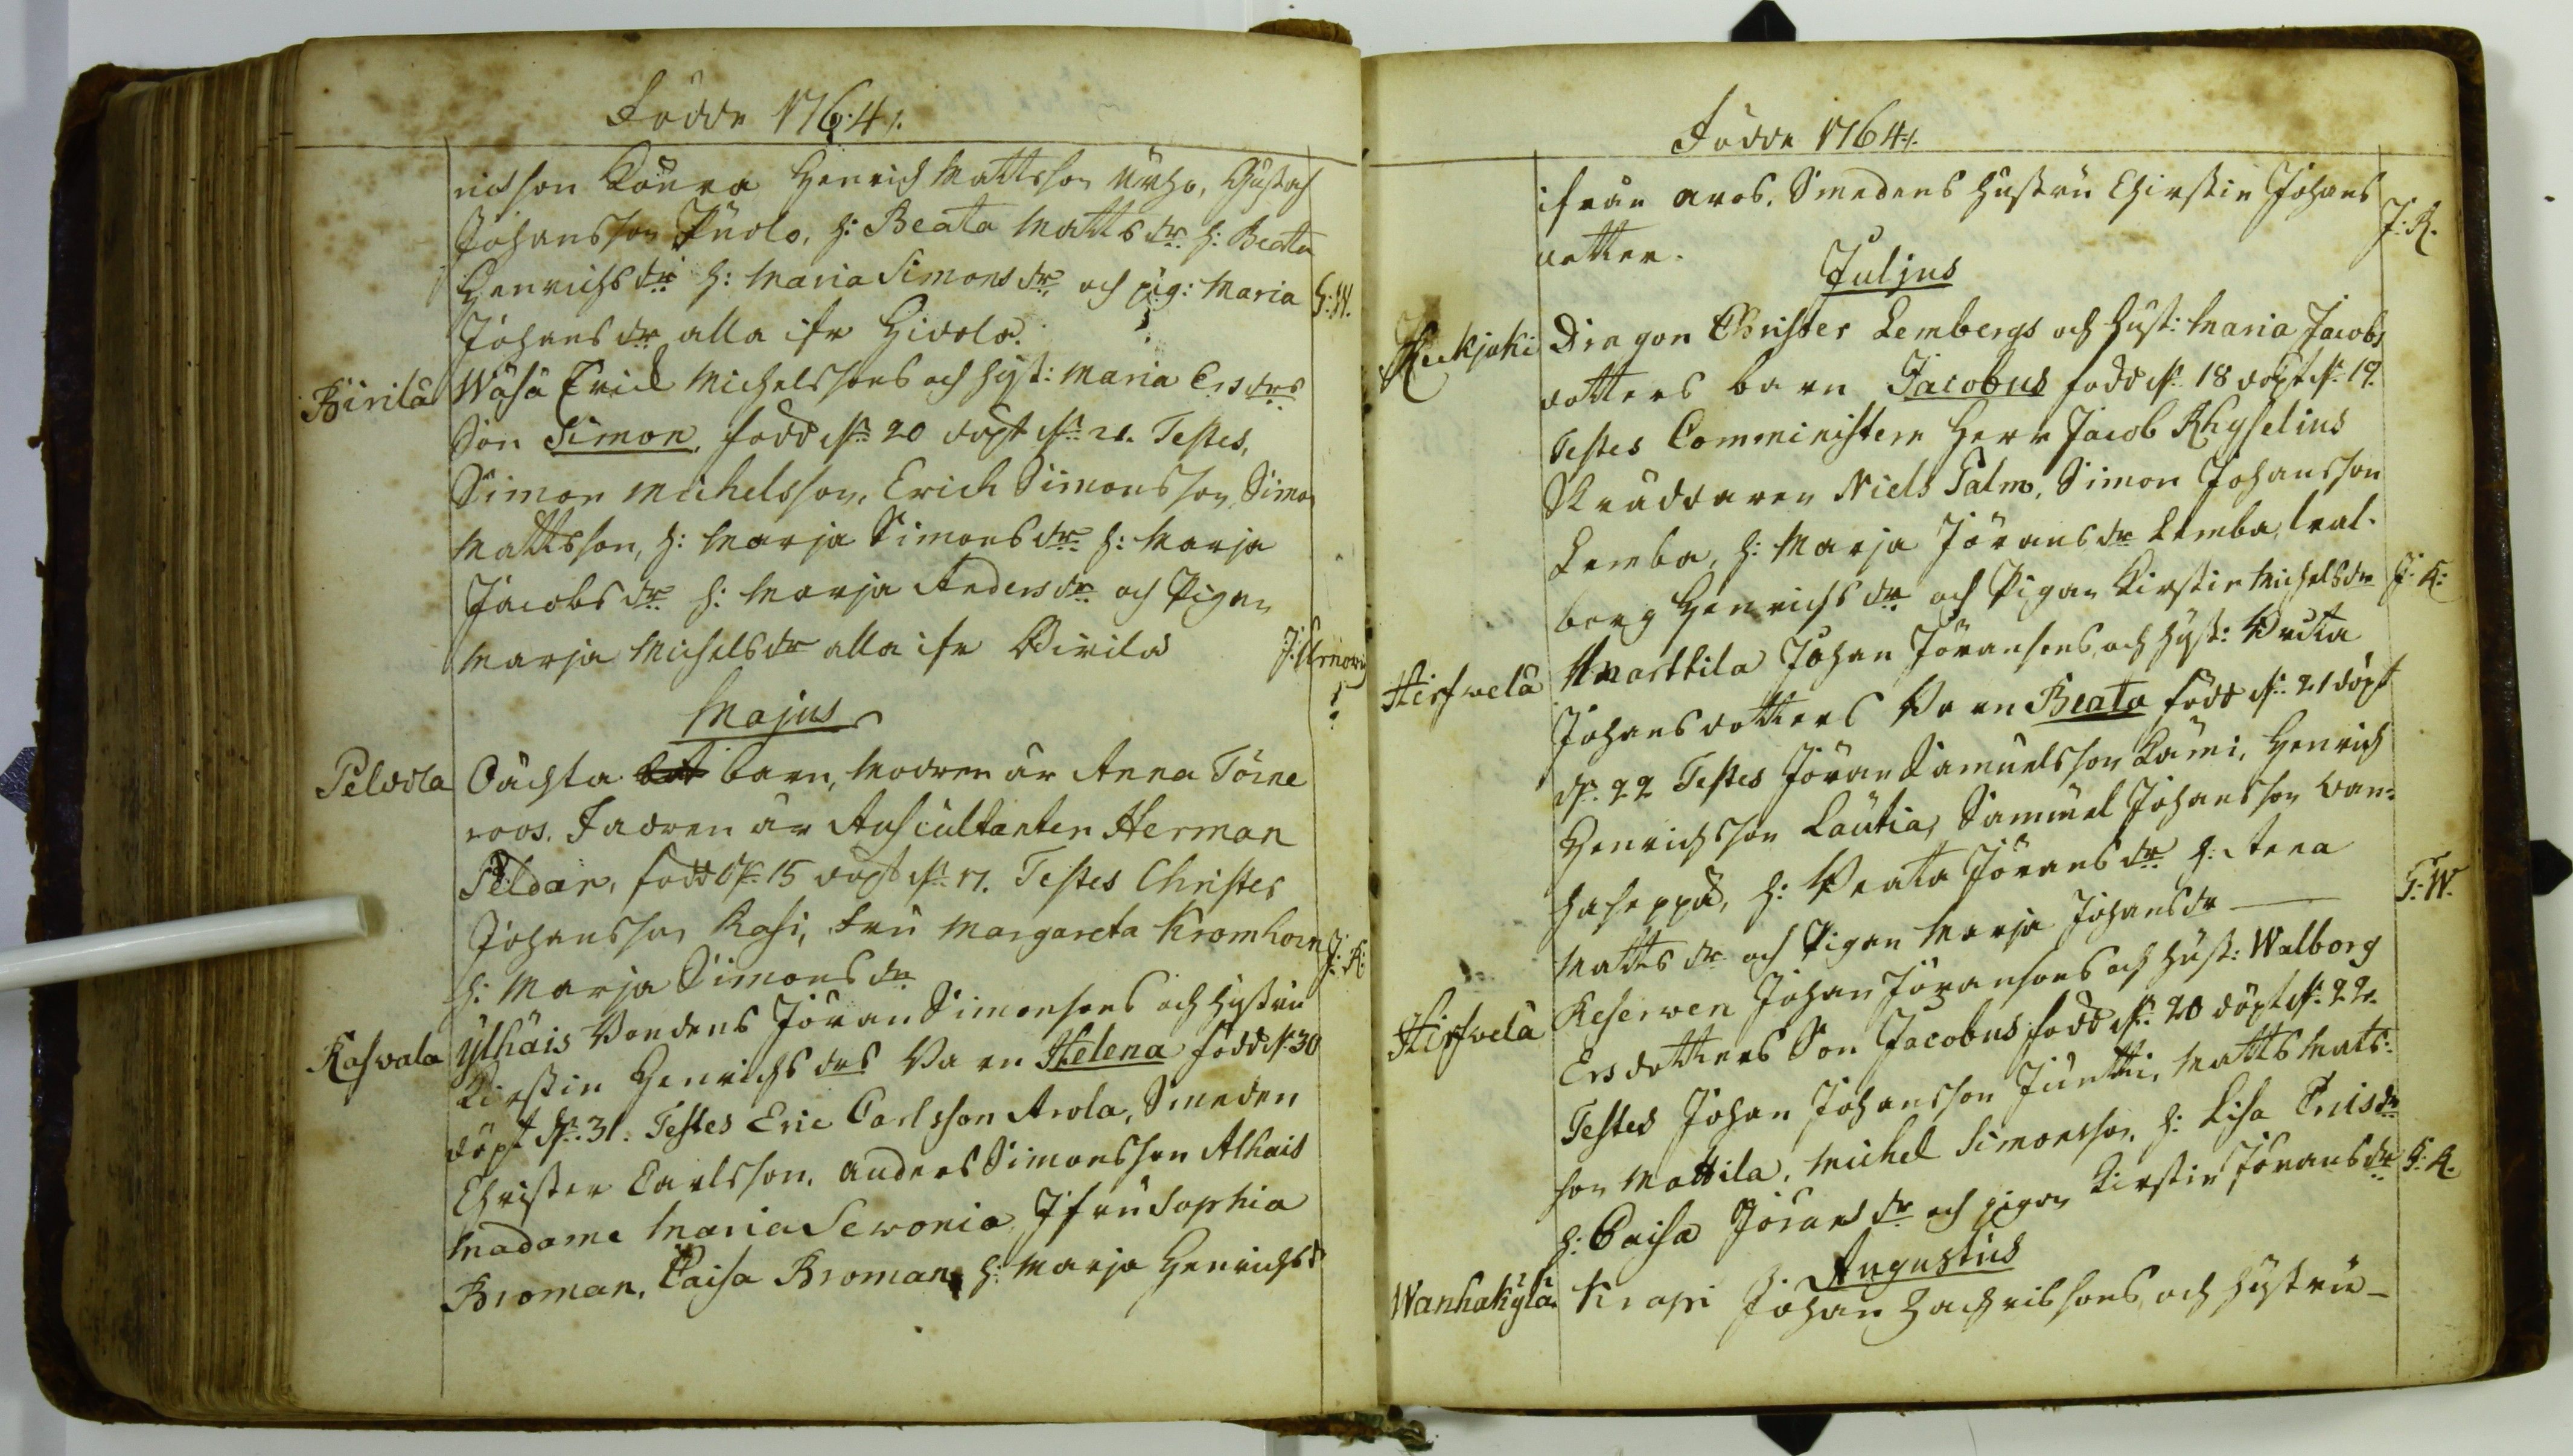 Födde 1764.
nichson Koura Henrich Mattsson Urho, Gustaf
Johansson Puolo, h: Beata Mattsdr. h: Beata
Henrichsdr. h: Maria Simonsdr. och pig: Maria
G: W.
Johansdr alla ifr Hivola.
Birila
Wäsä Erich Michelssons och hust: Maria Ersdrs
Son Simon, född d. 20 döpt d. 21. Testes,
Simon Michelsson, Erich Simonsson, Simon
Mattsson, h: Marja Simonsdr. h: Marja
Jacobsdr. h: Marja Andersdr. och Pigan
Marja Michelsdr alla ifr Birila
Majus
Peldola
Oächta barn, Modren är Anna Törne
roos. Fadren är Auscultanten Herman
Peldan, född d. 15 döpt d. 17. Testes Christer
Johansson Kasi, Fru Margareta Kromhorn
J: K:
h: Marja Simonsdr
Kasvala
Ylhäis Bondens Jöran Simonsons och hustru
Kirstin Henrichsdrs Barn Helena född d. 30
döpt d. 31. Testes Eric Carlsson Arola, Smeden
Christer Carlsson, Anders Simonsson Alhais
Madame Maria Sewonia, Jfru Sophia
Broman, Caisa Broman, h: Marja Henrichsd
Födde 1764.
ifrån aros. Smedens hustru Chirstin Johans
dotter.
J: K.
Julius
Dragon Christer Lembergs och hust: Maria Jacobs
dotters barn Jacobus född d. 18 döpt d. 19.
Testes Comministern Herr Jacob Rhyselius
Skräddaren Niels Palm, Simon Johansson
Lemba, h: Marja Jöransdr Lemba, Wal-
borg Henrichsdr. och Pigan Kirstin Michelsdr
J: K:
Hirfwelä
Marttila Johan Jöransons och hust: Brita
Johansdotters Barn Beata född d. 21 döpt
d. 22 Testes Jöran Samuelsson Kämi, Henrich
Henrichsson Lautia, Samuel Johansson Wan-
haseppä, h: Beata Jöransdr. h: Anna
Mattsdr och Pigan Marja Johansdr
G: W.
Hirfvelä
Reserwen Johan Jöransons och hust: Walborg
Ersdotters Son Jacobus född d. 20 döpt d. 22.
Testes Johan Johansson Juntti, Matts Mats-
son Mattila, Michel Simonsson, h: Lisa Ericsdr
h: Caisa Jöransdr och pigan Kirstin Jöransdr
J: K.
Augustus
Wanhakylä
Krapi Johan Zachrissons, och hustru